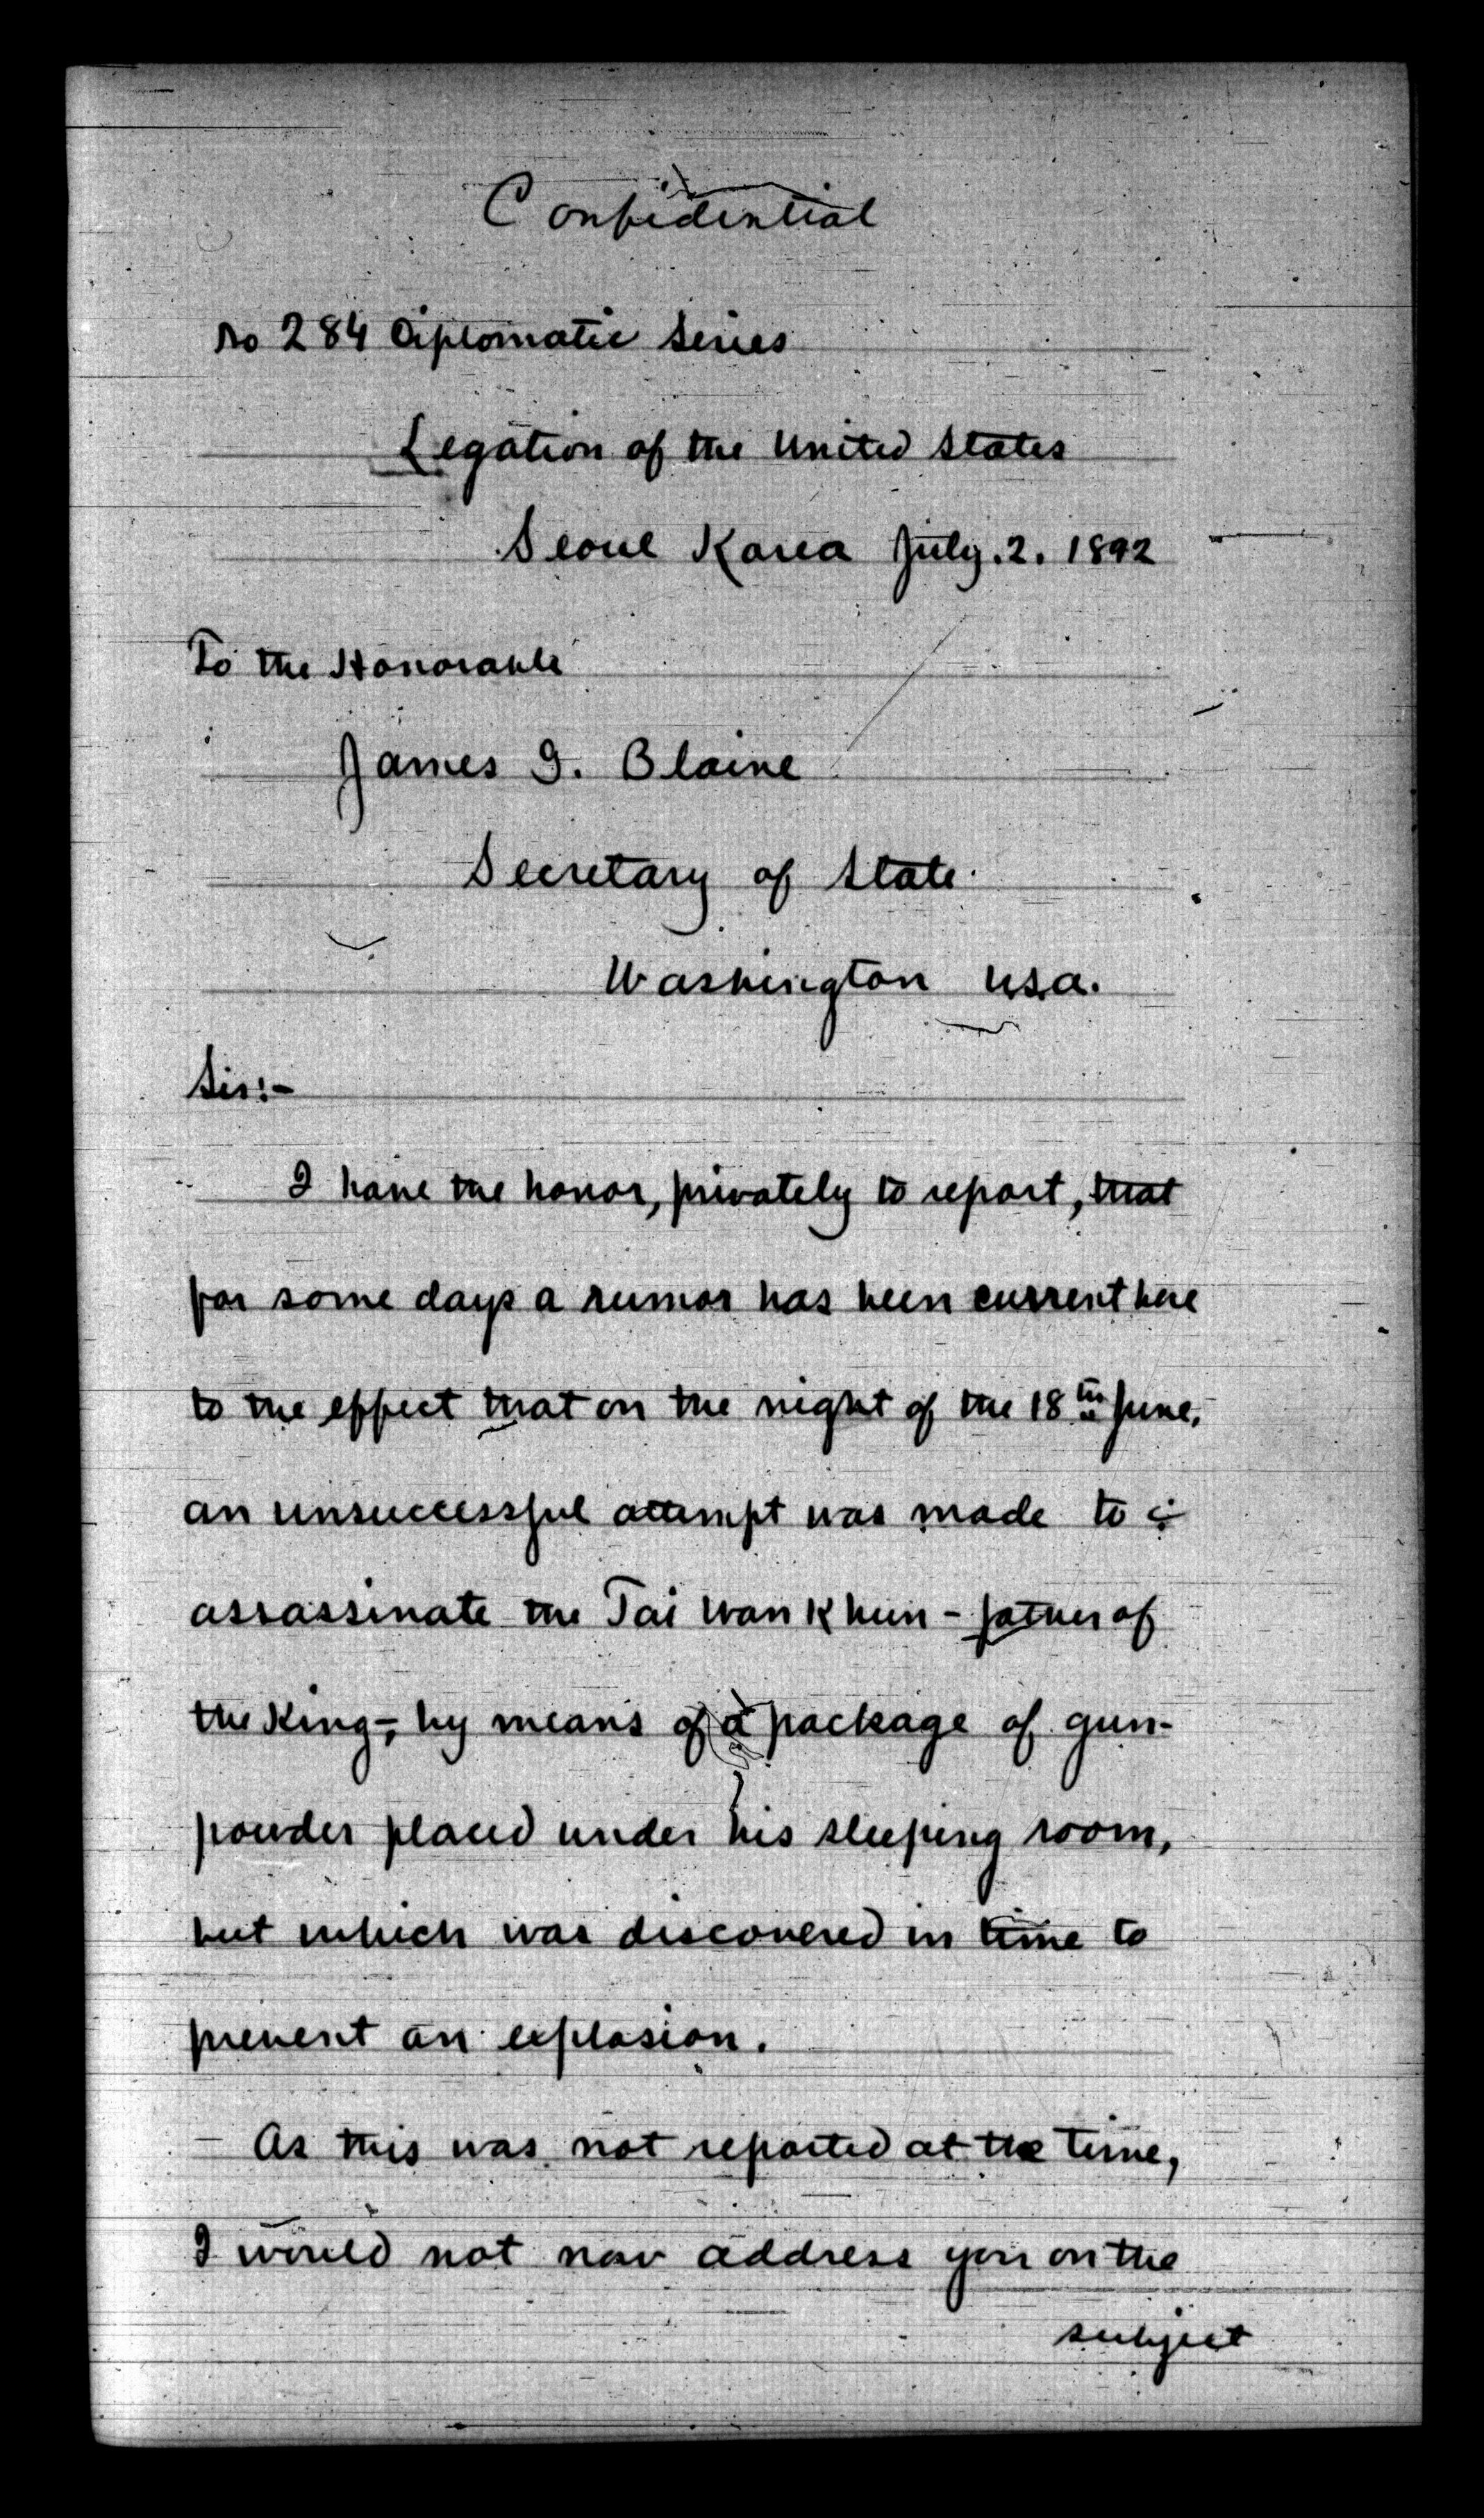 Confidential
No 284 Diplomatic Series
Legation of the United States
Seoul Korea July. 2. 1892
To the Honorable
James G. Blaine
Secretary of State.
Washington U.S.A.
Sir:-
I have the honor, privately to report, that
for some days a rumor has been current here
to the effect that on the night of the 18th June,
an unsuccessful attempt was made to
assassinate the Tai Wan Khun - father of
the King-, by means of a package of gun-
powder placed under his sleeping room,
but which was discovered in time to
prevent an explosion.
As this was not reported at the time,
I would not now address you on the
subject